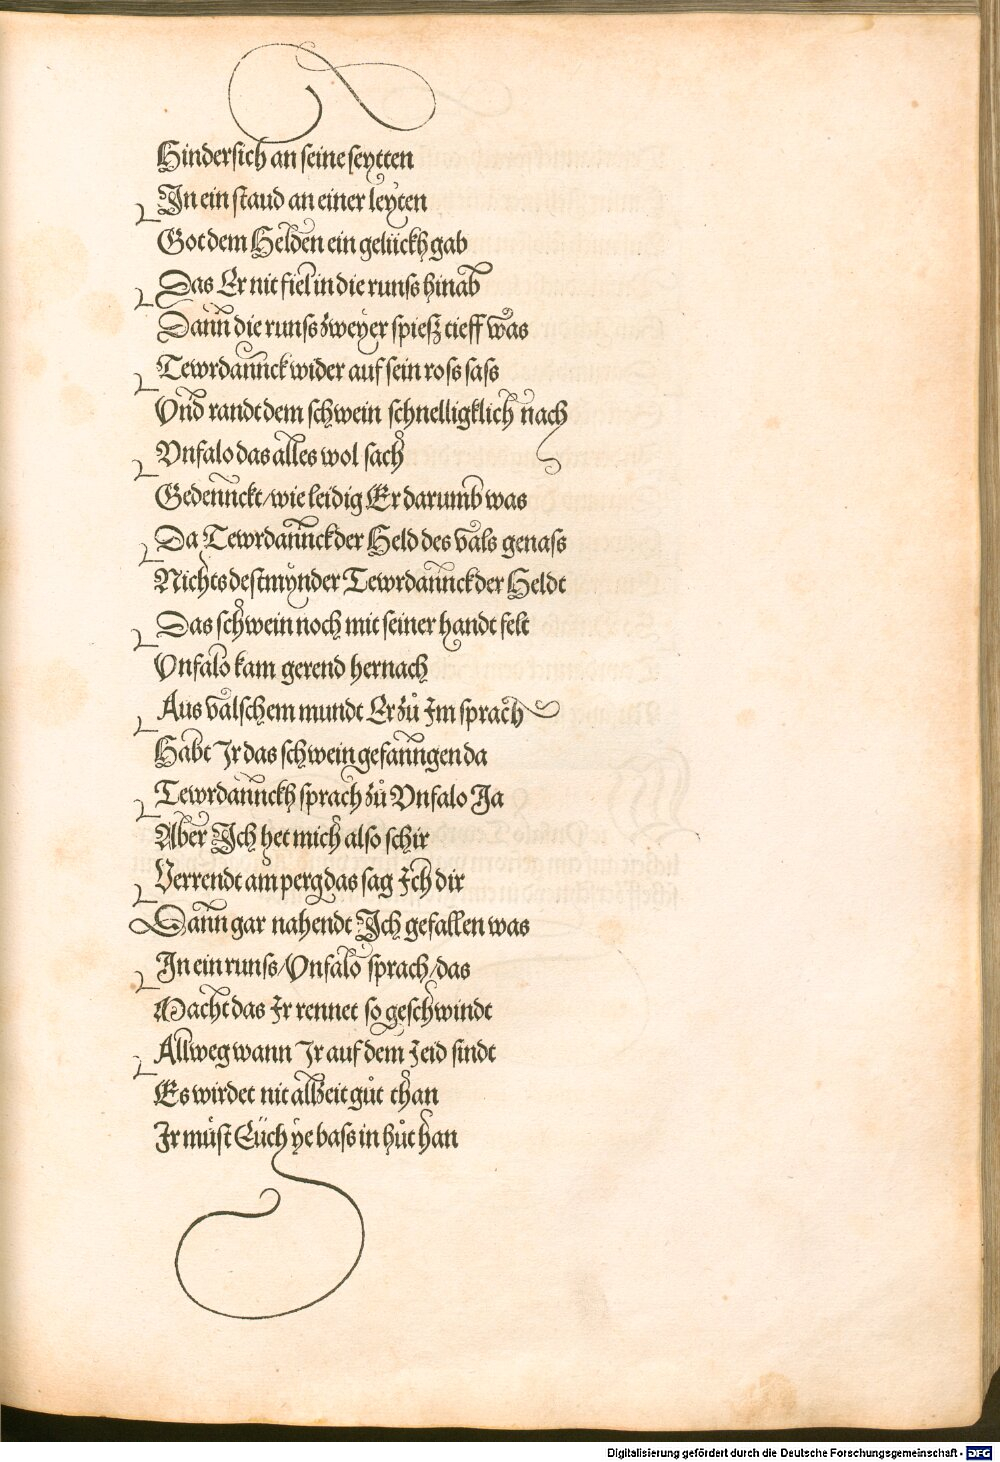 Hindersich an seine seytten
In ein staud an einer leyten
Got dem Helden ein gelückh gab
Das Er nit fiel in die runss hinab
Dann die runss zweyer spiesz tieff was
Tewrdannck wider auf sein ross sass
Vnd randt dem schwein schnelligklich nach
Vnfalo das alles wol sach
Gedennckt/wie leidig Er darumb was
Da Tewrdannck der Held des vals genass
Nichts destmynder Tewrdannck der Heldt
Das schwein noch mit seiner handt felt
Vnfalo kam gerend hernach
Aus valschem mundt Er zů Im sprach
Habt Ir das schwein gefanngen da
Tewrdannckh sprach zů Vnfalo Ja
Aber Ich het mich also schir
Verrendt am perg das sag Ich dir
Dann gar nahendt Ich gefallen was
In ein runss/Vnfalo sprach/das
Macht das Ir rennet so geschwindt
Allweg wann Ir auf dem Jeid sindt
Es wirdet nit albeit gůt than
Ir müst Eüch ye bass in hůt han
Digitalisierung gefördert durch die Deutsche Forschungsgemeinschaft - DFG